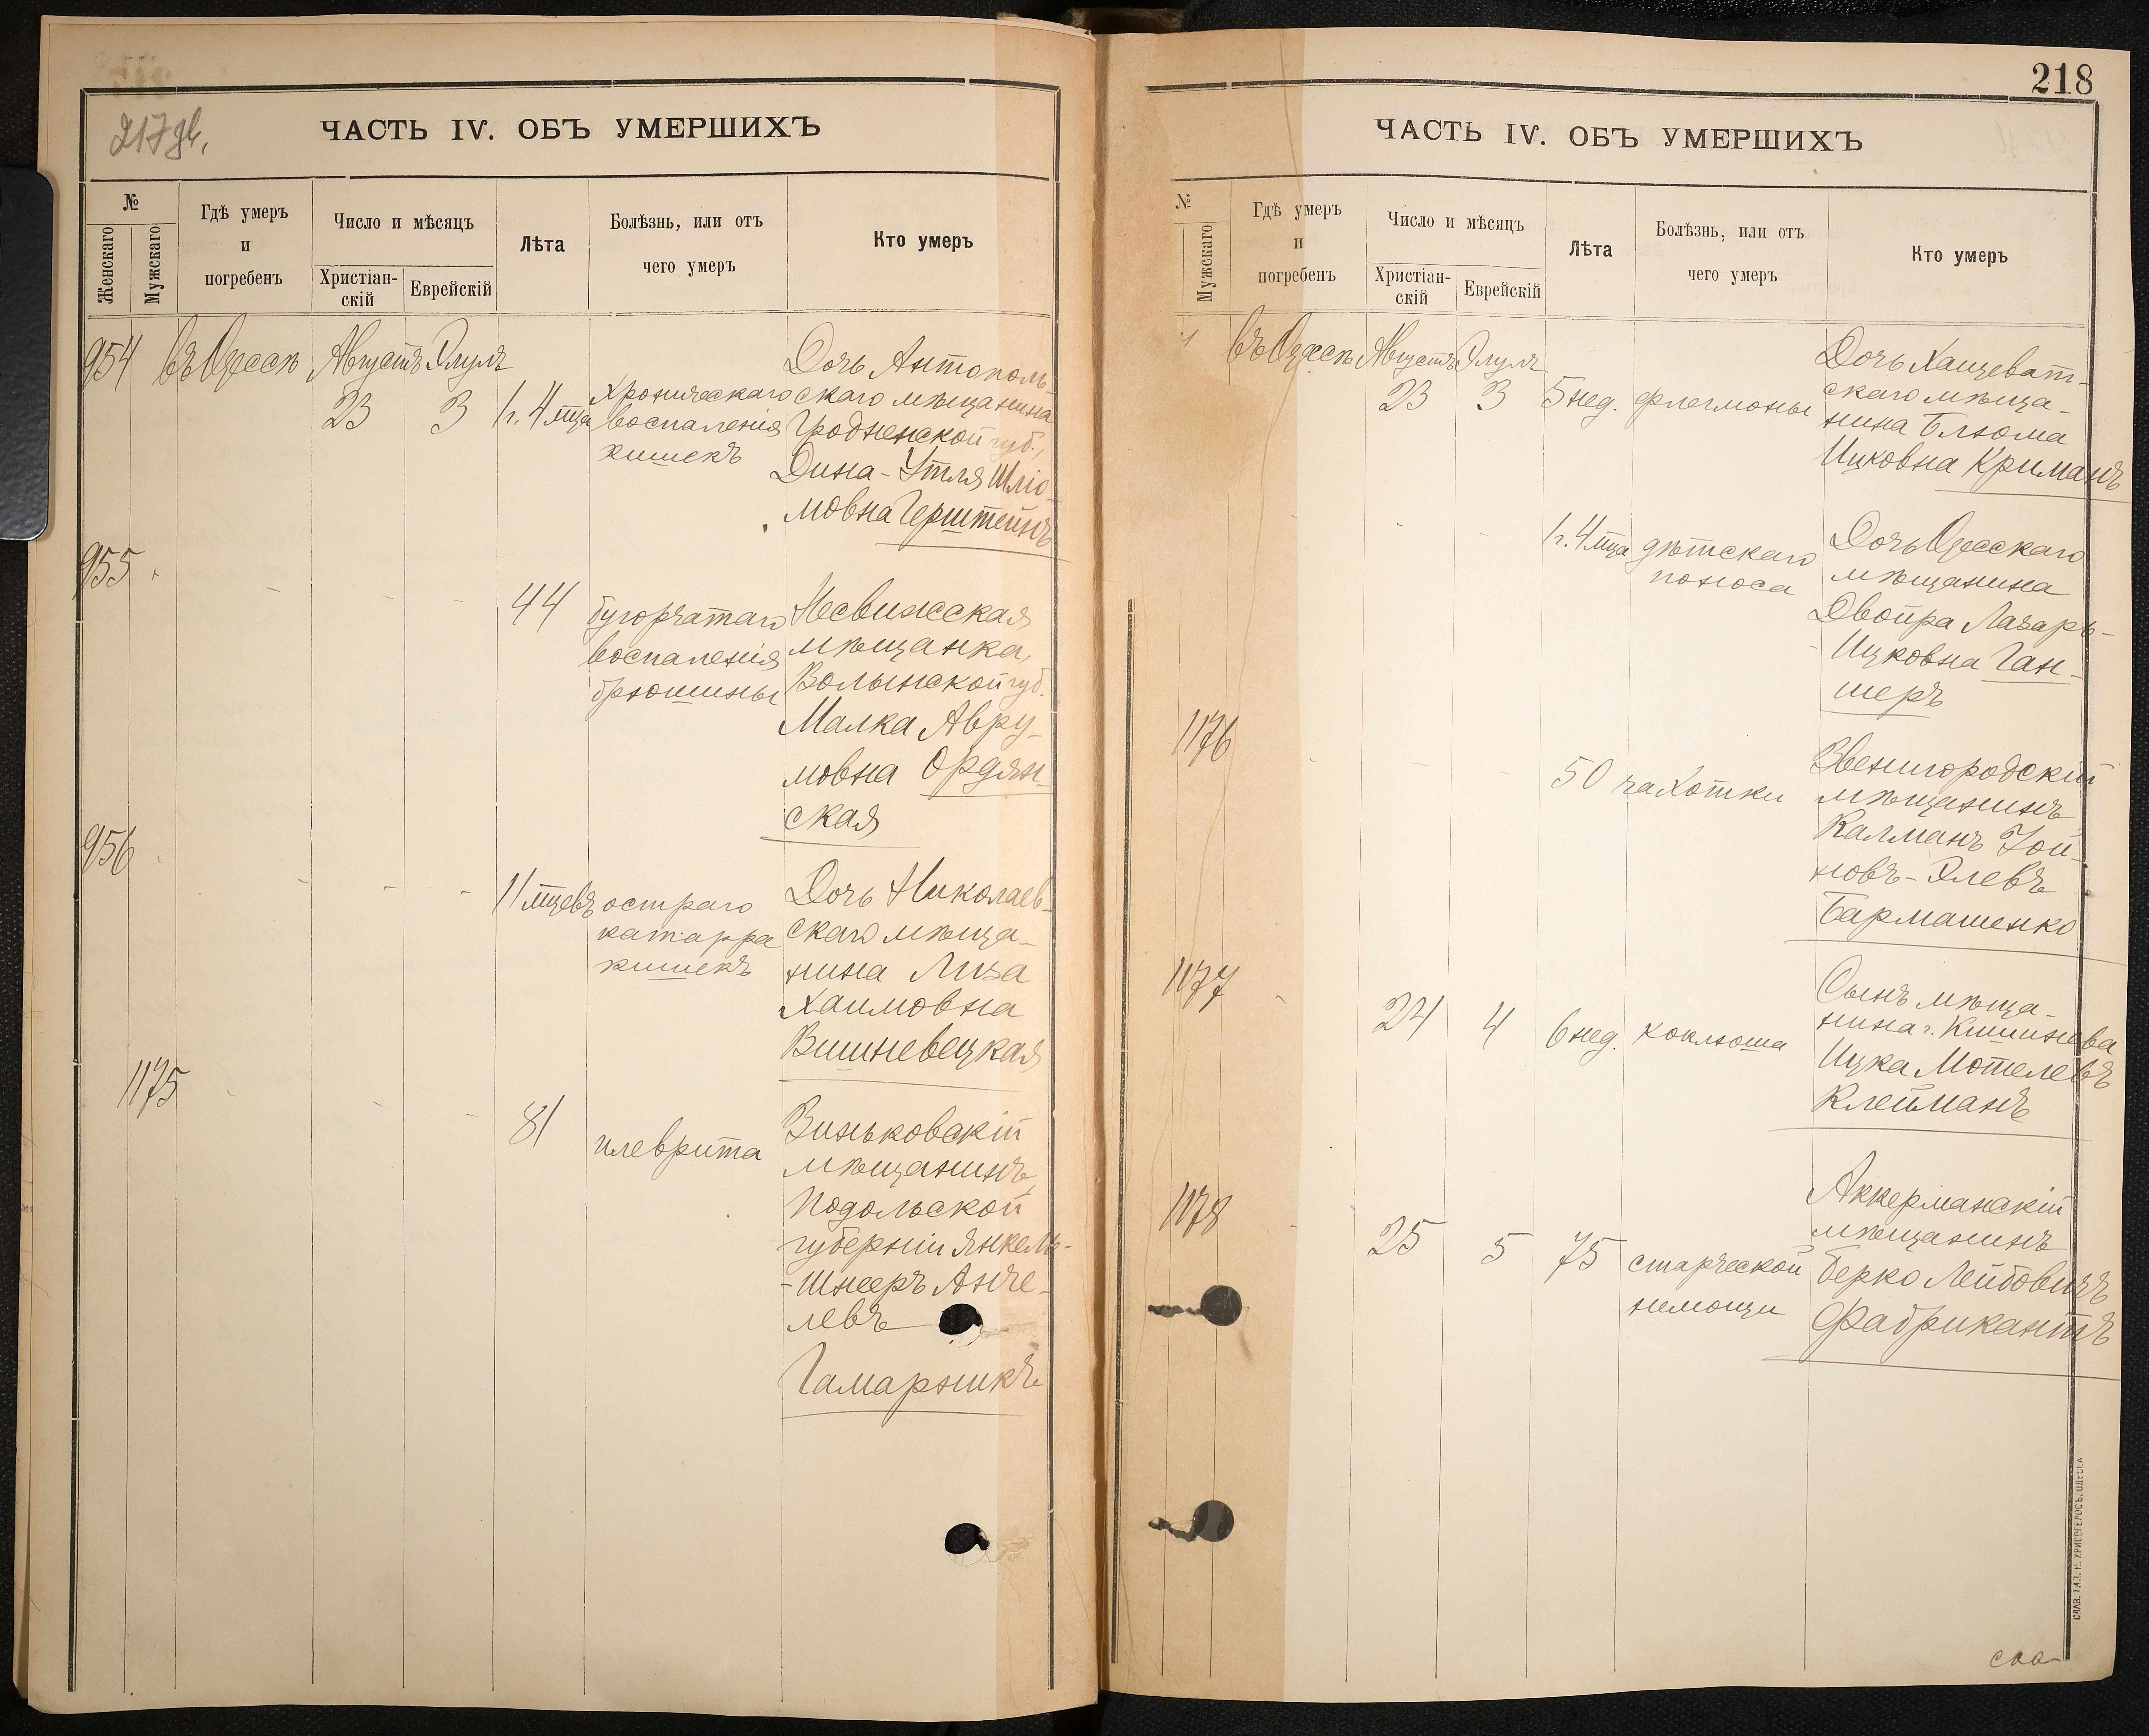 217 зв.
ЧАСТЬ IV. ОБЪ УМЕРШИХЪ
№
Женскаго
Мужскаго
Гдѣ умеръ
и
погребенъ
Число и мѣсяцъ
Христіан-
скій
Еврейскій
Лѣта
Болѣзнь, или отъ
чего умеръ
Кто умеръ
954 въ Одессѣ Августъ Элулъ
23 3 1 г. 4 мца
хроническаго
воспаленія
кишекъ
Дочь Антополь
скаго мѣщанина
Гродненской губ.,
Дина-Этля Шлiо-
мовна Герштейнъ
955
44
бугорчатаго
воспаленія
брюшины
Несвижская
мѣщанка,
Волынской губ.
Малка Авру-
мовна Ордян-
ская
956
11 мцевъ
остраго
катарра
кишекъ
Дочь Николаев-
скаго мѣща-
нина Лиза
Хаимовна
Вишневецкая
1175
81
плеврита
Виньковскій
мѣщанинъ,
Подольской
губерніи Янкель-
-Шнееръ Анче-
левъ
Гамарникъ
218
ЧАСТЬ IV. ОБЪ УМЕРШИХЪ
№
Мужскаго
Гдѣ умеръ
и
погребенъ
Число и мѣсяцъ
Христіан-
скій
Еврейскій
Лѣта
Болѣзнь, или отъ
чего умеръ
Кто умеръ
въ Одессѣ Августъ Элулъ
23 3 5 нед. флегмоны
Дочь Хащеват-
скаго мѣща-
нина Блюма
Ицковна Криманъ
1 г. 4 мца дѣтскаго
поноса
Дочь Одесскаго
мѣщанина
Двойра Лазарь-
Ицковна Ган-
шеръ
1176
50 чахотки
Звенигородскій
мѣщанинъ
Калманъ Іой-
новъ-Элевъ
Бармашенко
1177
24 4 6 нед. коклюша
Сынъ мѣща-
нина г. Кишинева
Ицка Мотелевъ
Клейманъ
1178
25 5 75 старческой
немощи
Аккерманскій
мѣщанинъ
Берко Лейбовичъ
Фабрикантъ